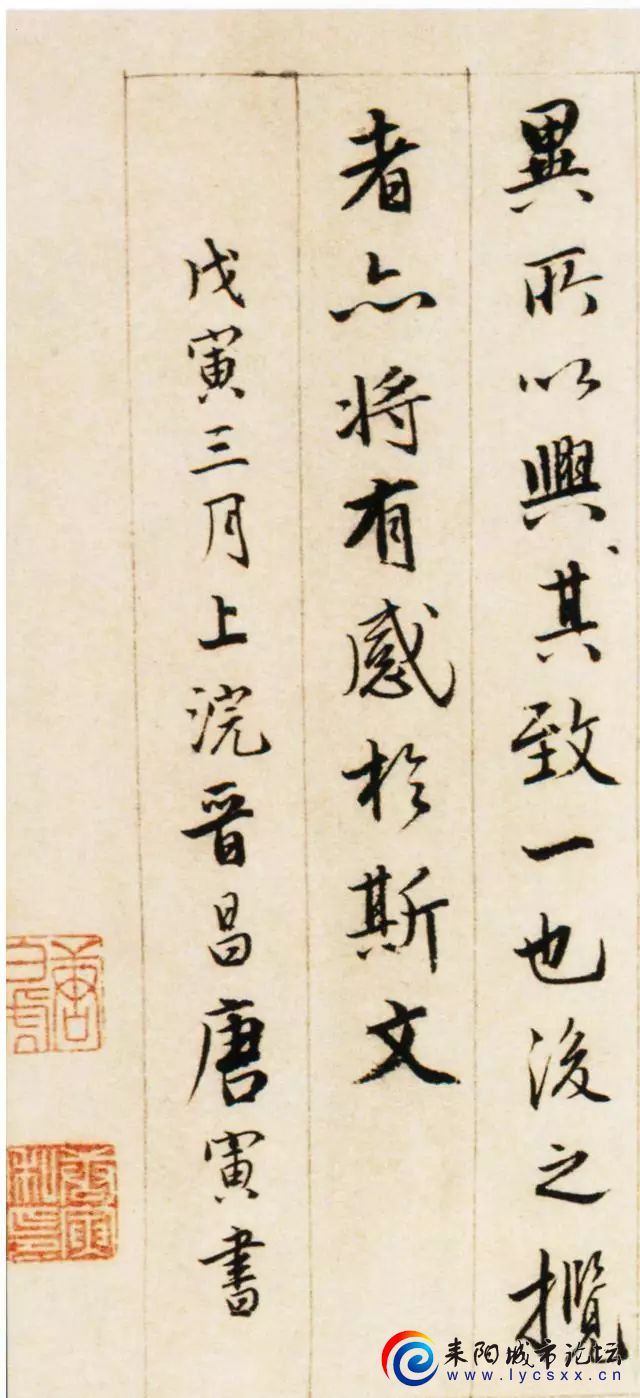 異所以興其致一也後之攬
者亦將有感於斯文
戊寅三月上浣晋昌唐寅書
耒阳城市论坛
www.lycsxx.cn